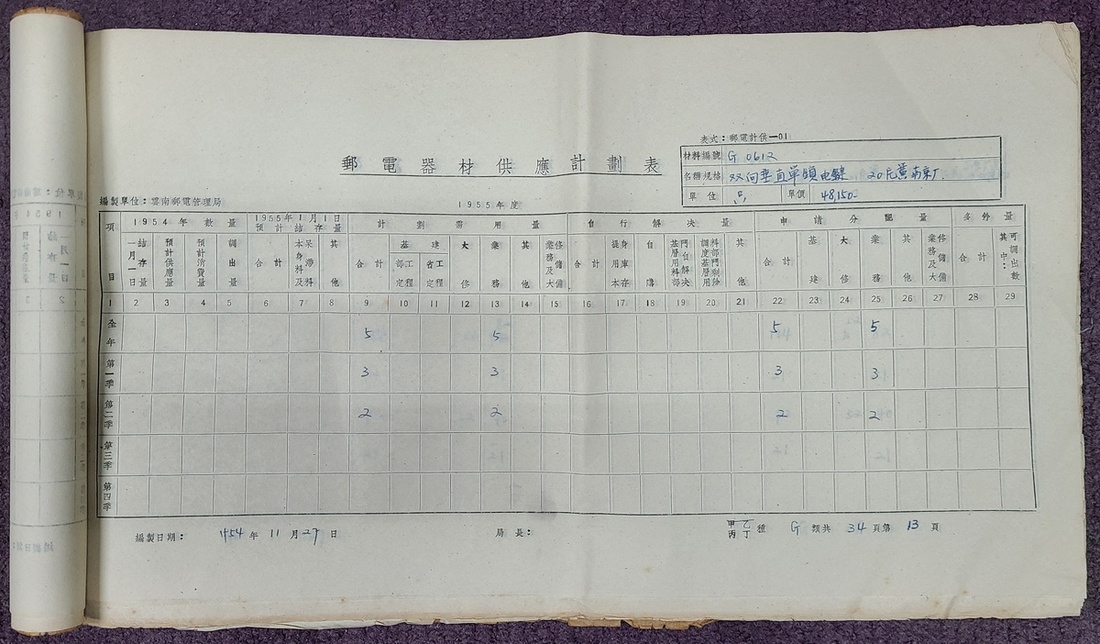 表式：郵電計供—01
郵電器材供應計劃表
材料編號 G 0612
名稱規格 双向垂直單頭电鍵 20
單位 單價 48,150-
編製單位：雲南郵電管理局
1955年度
項目 1954年數量 1955年1月1日預計結存量 計劃需用量 自行解決量 申請分配量 多餘量
一月一日結存量 預計供應量 預計消費量 調出量 合計 其他 合計 基建 部定工程 省定工程 大修 業務 其他 合計 自購 其他 合計 基建 大修 業務 其他 合計 其中：可調出數
1 2 3 4 5 6 7 8 9 10 11 12 13 14 15 16 17 18 19 20 21 22 23 24 25 26 27 28 29
全年 5 5 5 5
第一季 3 3 3 3
第二季 2 2 2 2
第三季
第四季
編製日期： 1954年11月27日 局長： 甲乙丙丁種 G 類共 34 頁第 13 頁